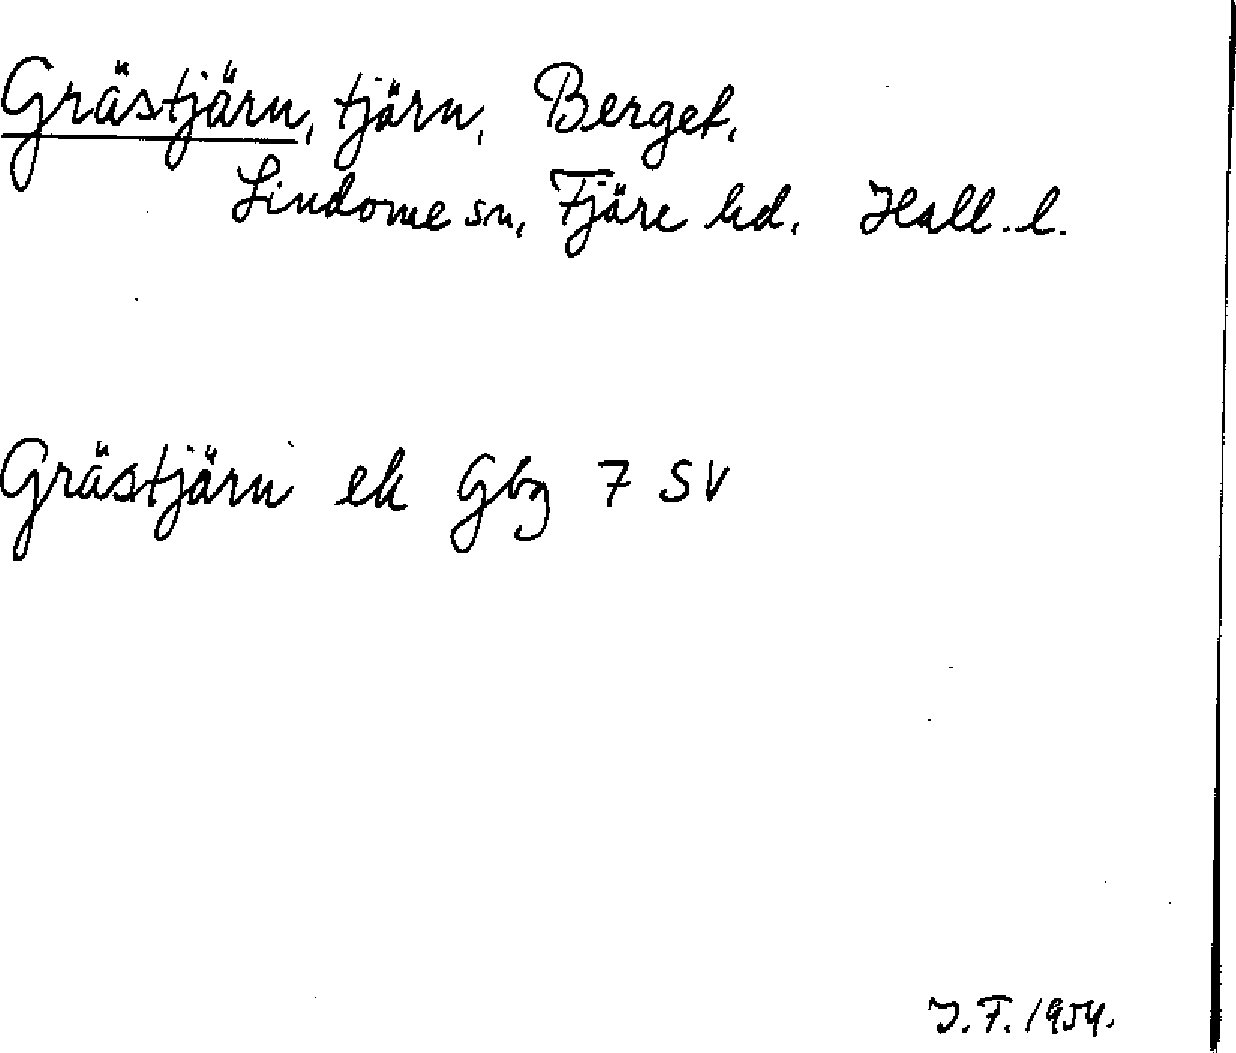 Grästjärn, tjärn, Berget,
Lindome sn, Fjäre hd, Hall. l.
Grästjärn ek Gbg 7 SV
J. F. 1954.